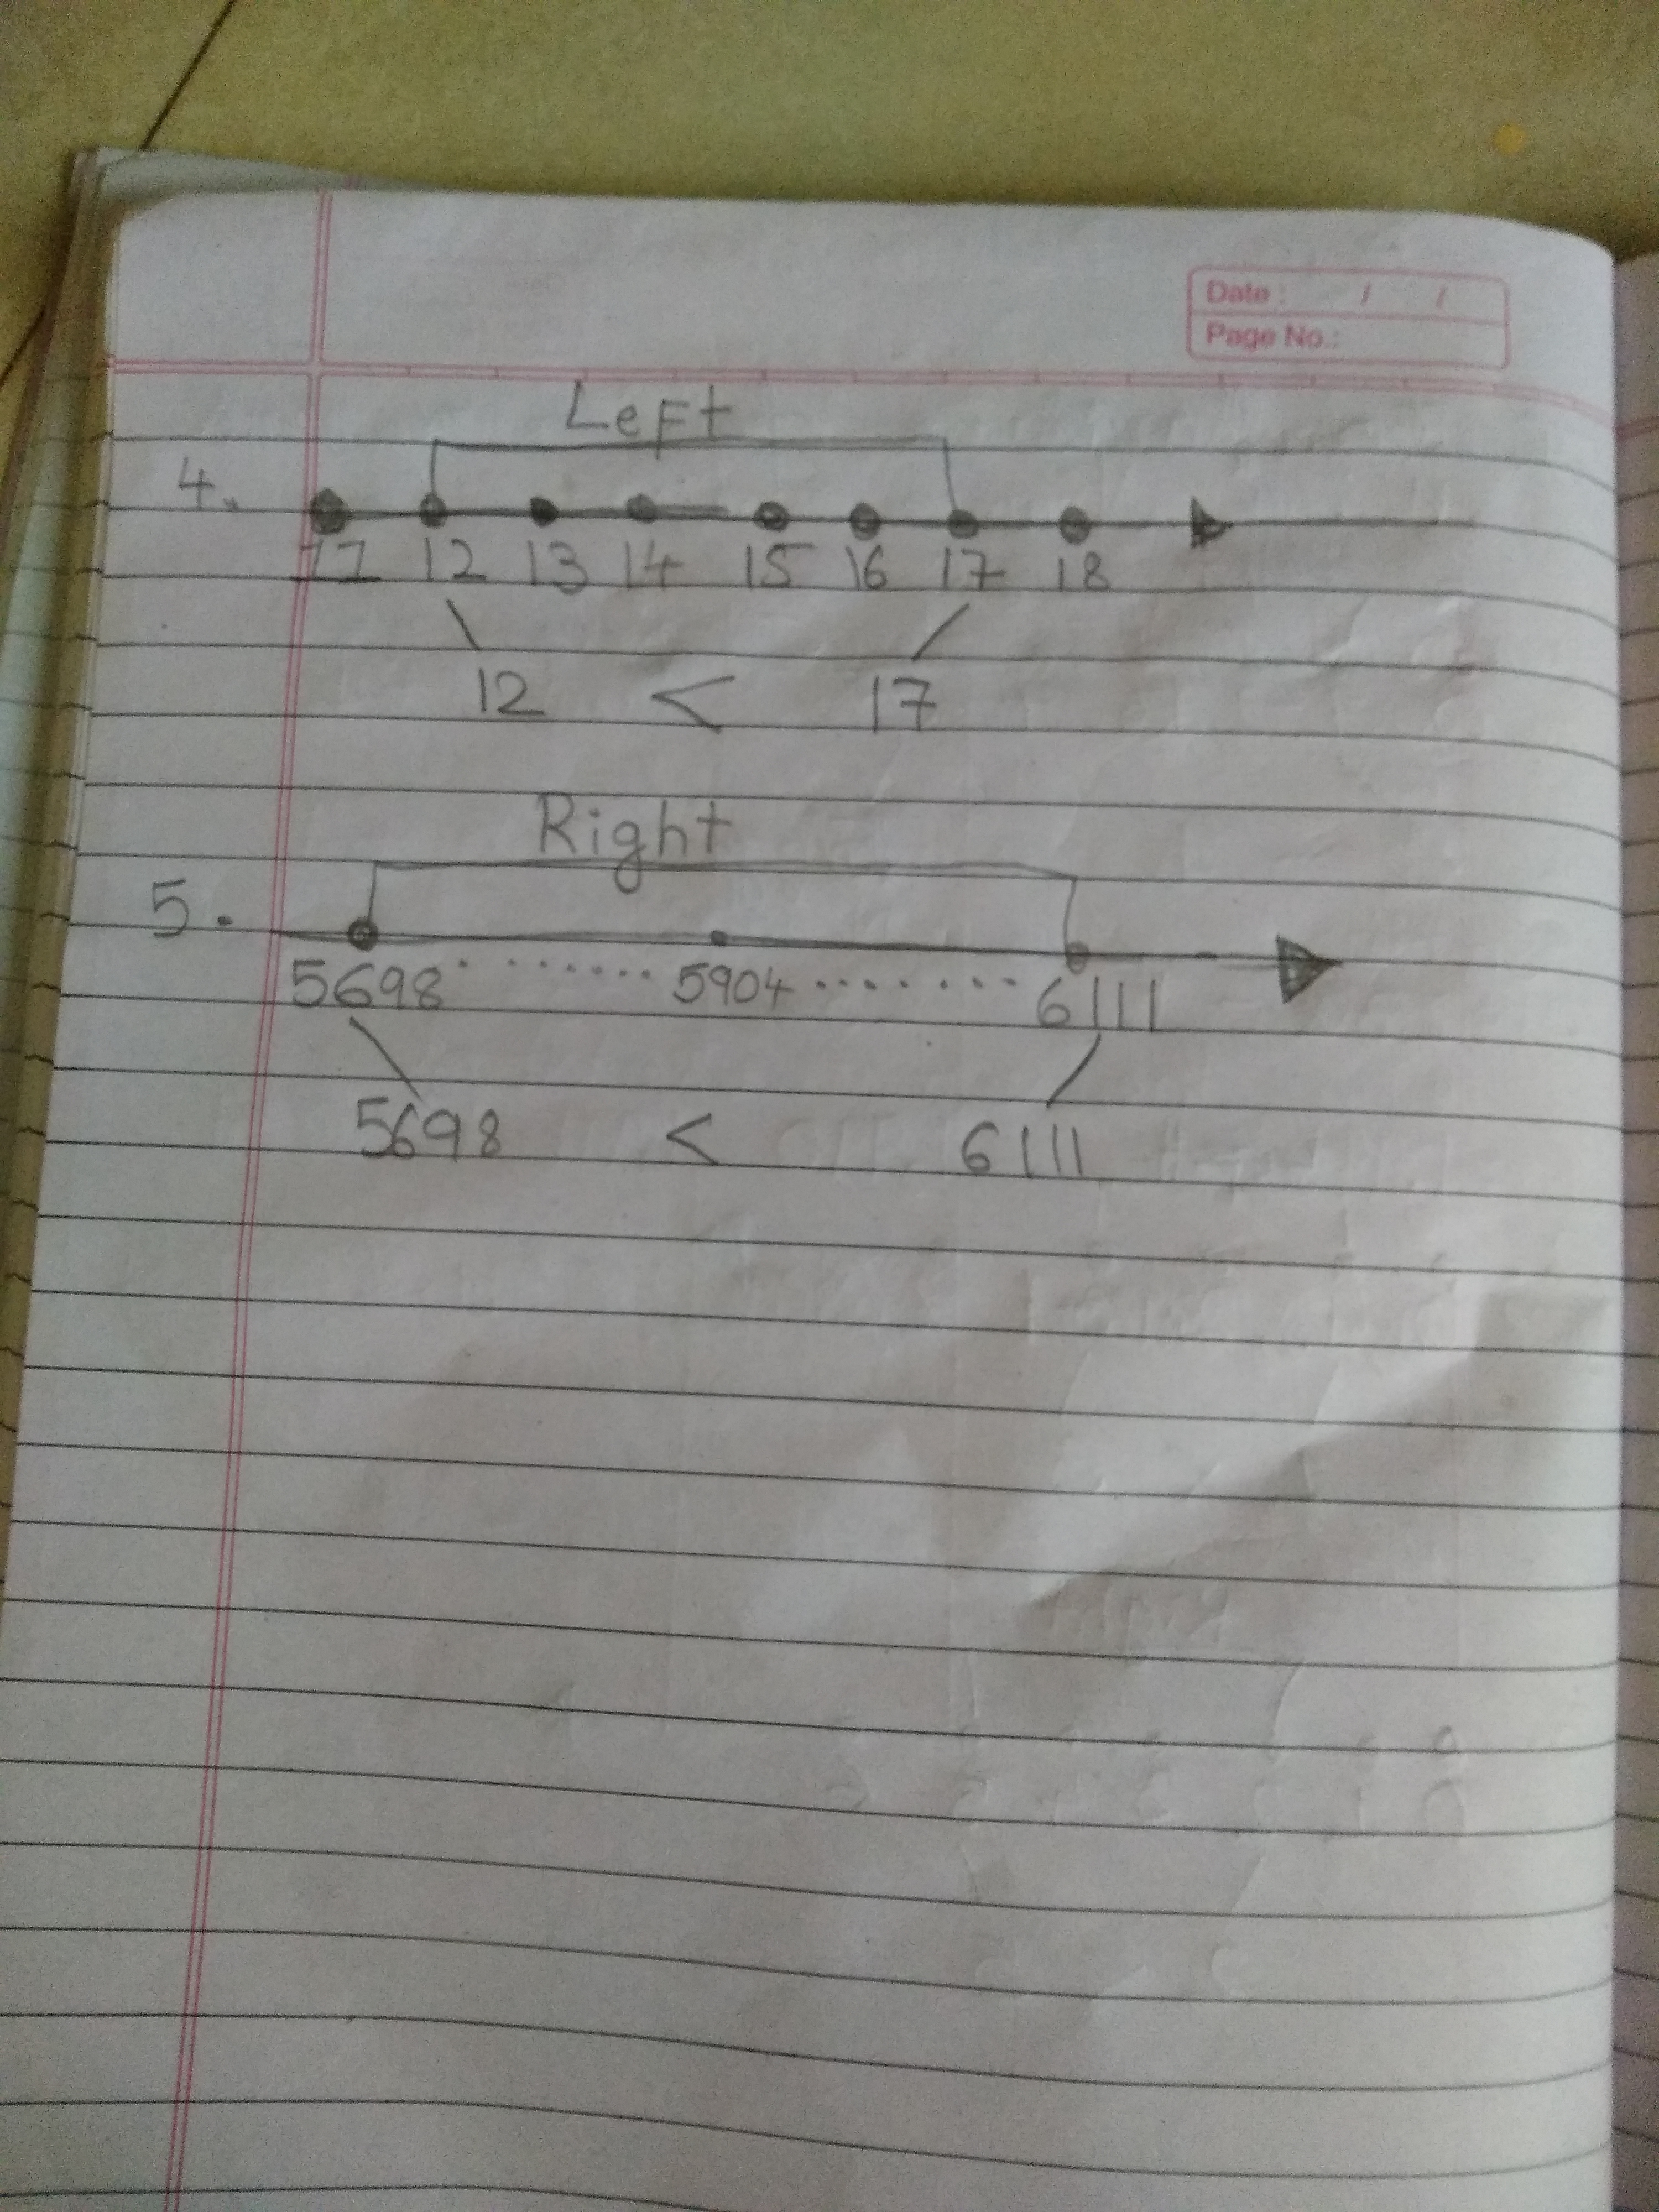 Date : / /
Page No.:
Left
4.
11 12 13 14 15 16 17 18
12 < 17
Right
5.
5698 ........ 5904 ........ 6111
5698 < 6111